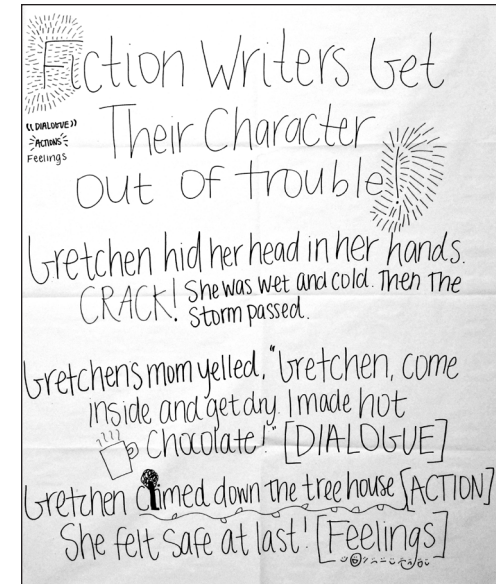 Fiction Writers Get
Their Character
out of trouble!
((DIALOGUE))
ACTIONS
Feelings
Gretchen hid her head in her hands.
CRACK! She was wet and cold. Then The
Storm passed.
Gretchens mom yelled, "Gretchen, come
inside and get dry. I made hot
Chocolate!" [DIALOGUE]
Gretchen climed down the tree house [ACTION]
She felt safe at last! [Feelings]